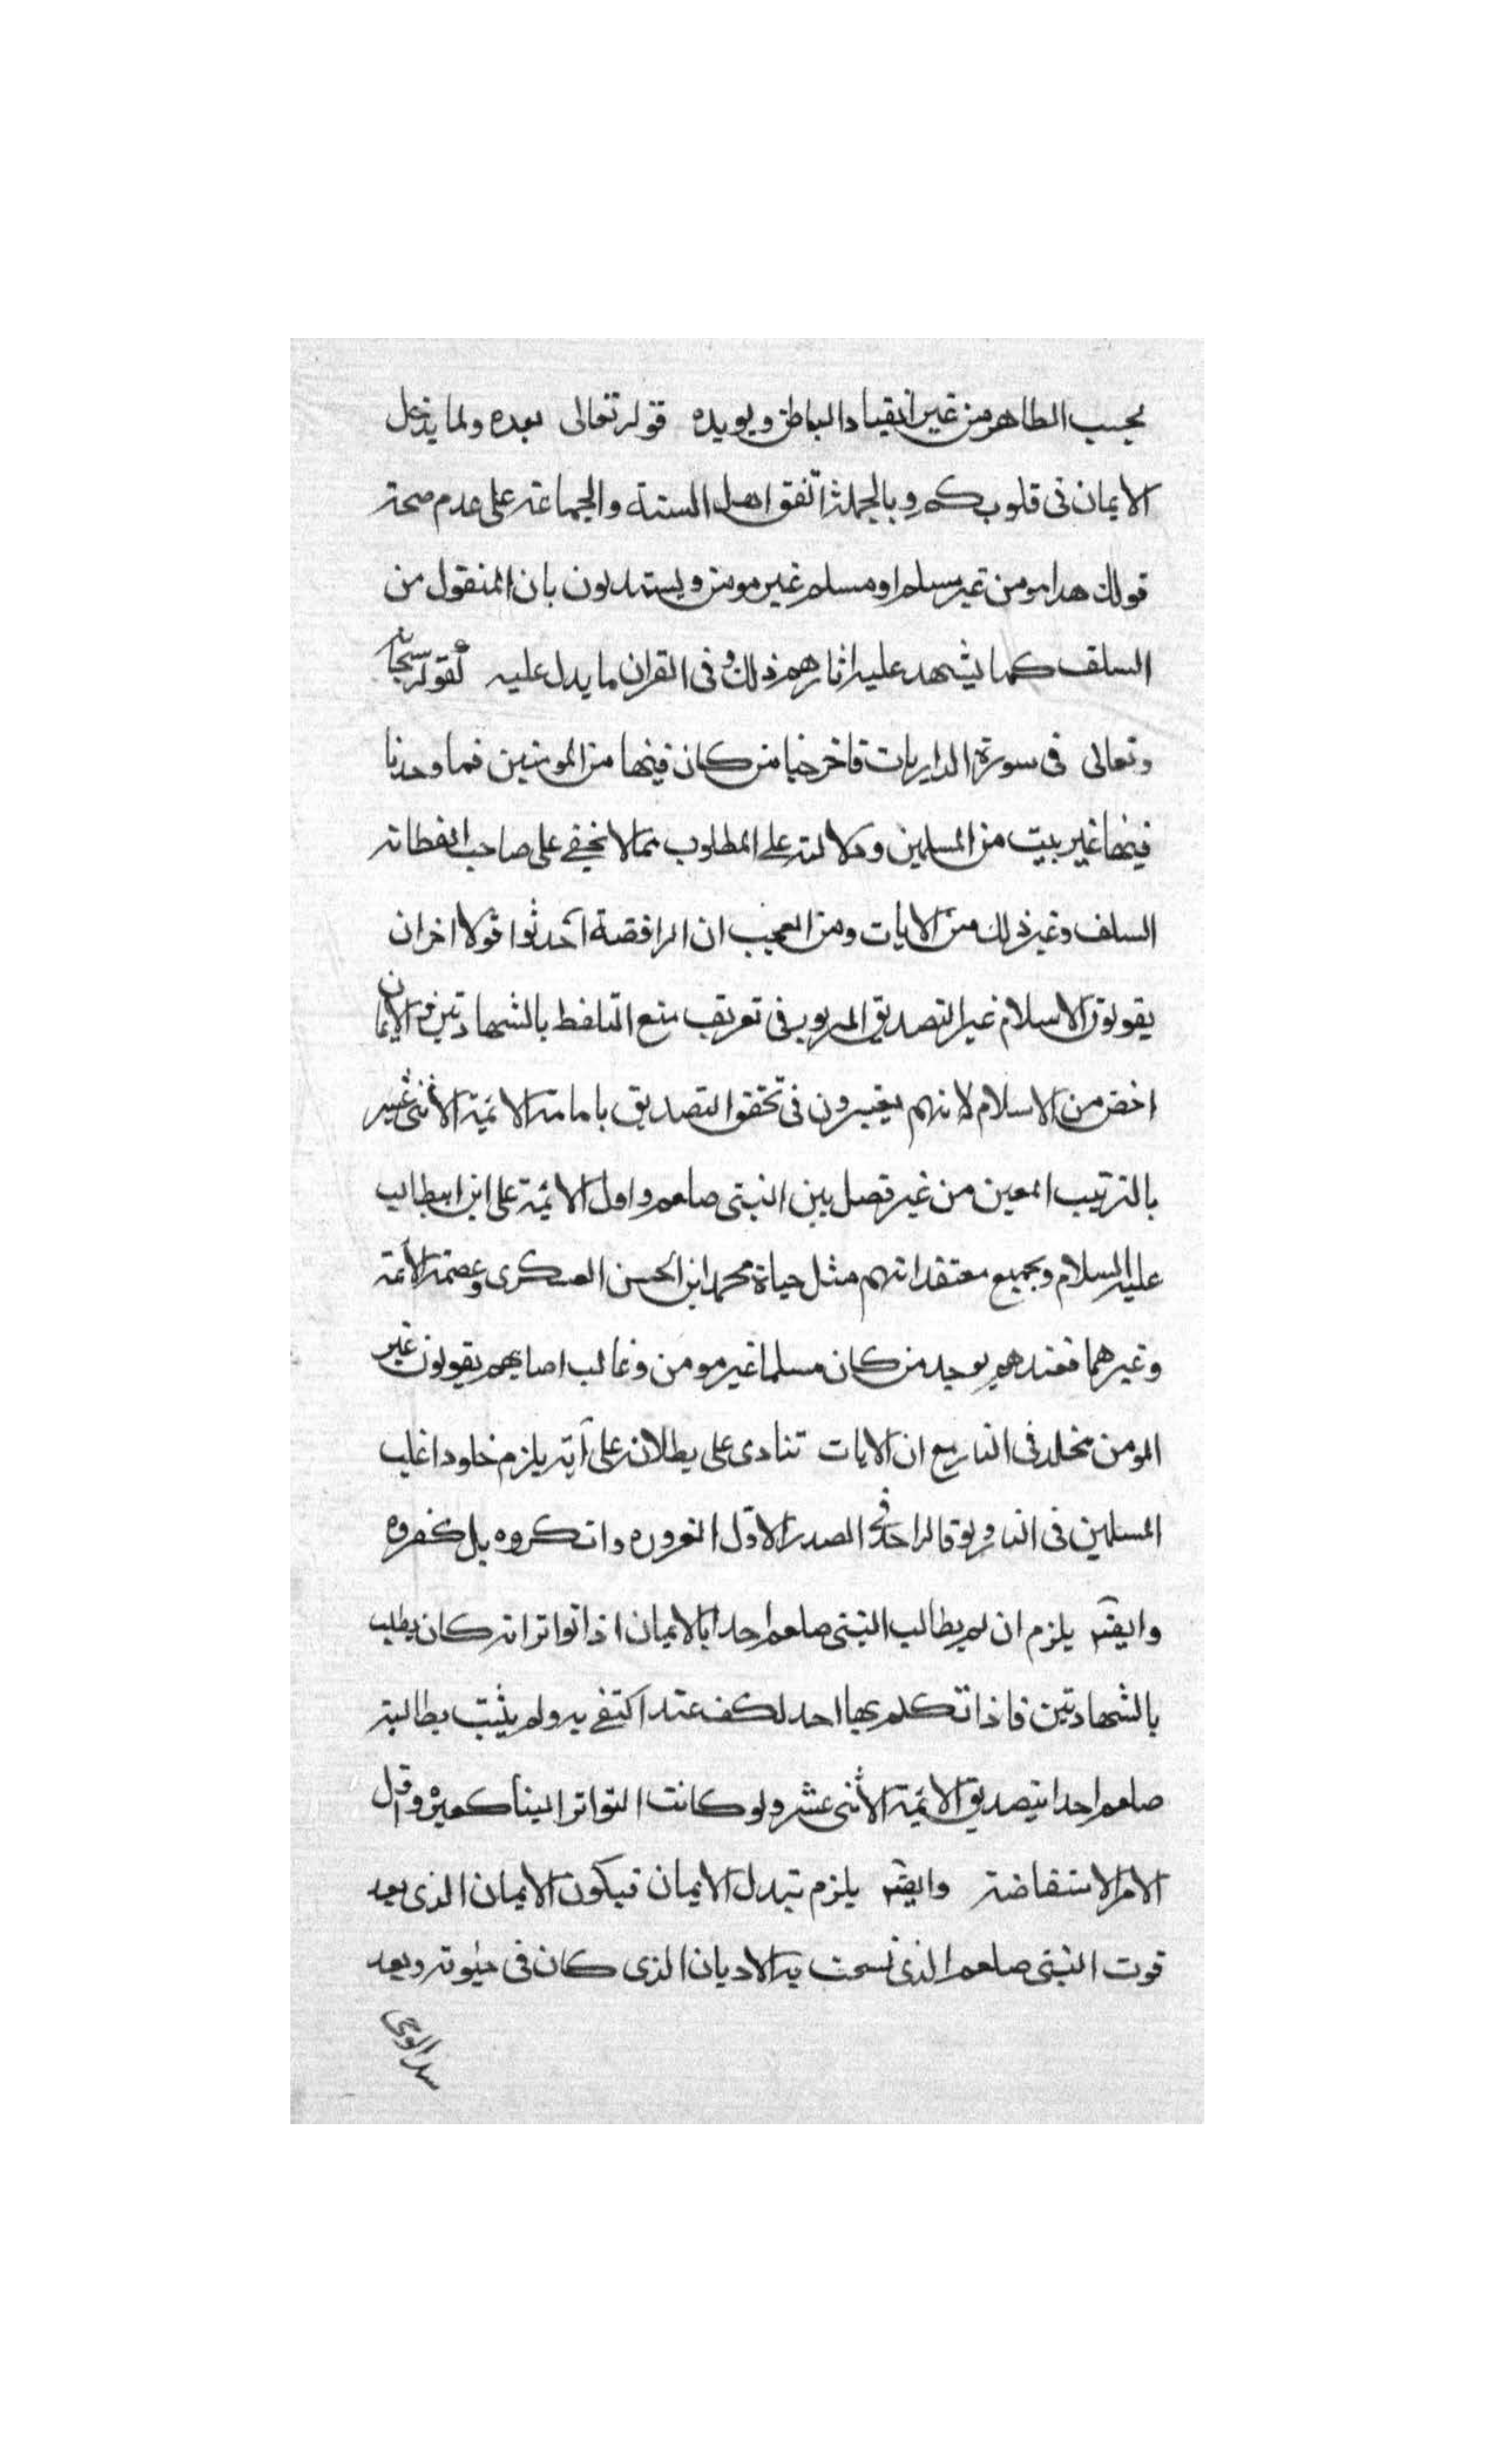 بحسب الظاهر من غير انقياد الباطن ويويده قوله تعالى بعده ولما يدخل
الايمان فى قلوبكم وبالجملة اتفق اهل السنة والجماعة على عدم صحة
قولك هدا مومن غير مسلم او مسلم غير مومن ويستدلون بان المنقول من
السلف كما يشهد عليه اثارهم ذلك وفى القران ما يدل عليه كقوله سبحانه
وتعالى فى سورة الداريات فاخرجنا من كان فيها من المومنين فما وجدنا
فيها غير بيت من المسلمين ودلالته على المطلوب مما لا يخفى على صاحب الفطانة
السلف وغير ذلك من الايات ومن العجب ان الرافضة احدثوا قولا اخر ان
يقولون الاسلام غير التصديق فى تعريف منع التلفظ بالشهادتين الايمان
اخص من الاسلام لانهم يعتبرون فى تحقق التصديق بامامة الائمة الاثنى عشر
بالترتيب المعين من غير فصل بين النبى صلعم واول الائمة على ابن ابيطالب
عليه السلام وبجميع معتقداتهم مثل حياة محمد ابن الحسن العسكرى وعصمة الائمة
وغيرهما فعندهم يوجد من كان مسلما غير مومن وغالب اصابهم يقولون غير
المومن مخلد فى النار مع ان الايات تنادى على بطلانه على انه يلزم خلود اغلب
المسلمين فى النار ولو قاله احد فى الصدر الاول وانكروه بل كفروه
وايضه يلزم ان لم يطالب النبى صلعم احدا بالايمان اذا تواتر انه كان يطلب
بالشهادتين فاذا تكلم بها احد لكف عنه اكتفى به ولم يثبت مطالبته
صلعم احدا بتصديق الائمة الاثنى عشر ولو كانت التواتر الينا واقل
الامر الاستفاضة وايضه يلزم تبدل الايمان فيكون الايمان الذى بعد
فوت النبى صلعم الذى نسخت به الاديان الذى كان فى حيوته وبعد